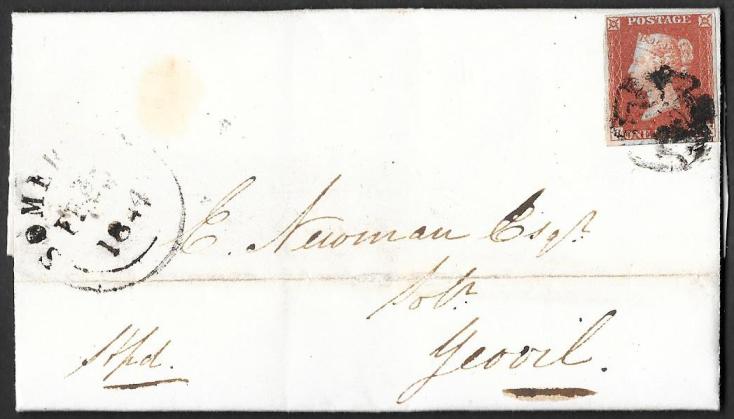 POSTAGE
ONE
SOME
FE
1844
C. Newman Esqr.
Solr.
Yeovil.
Stpd.